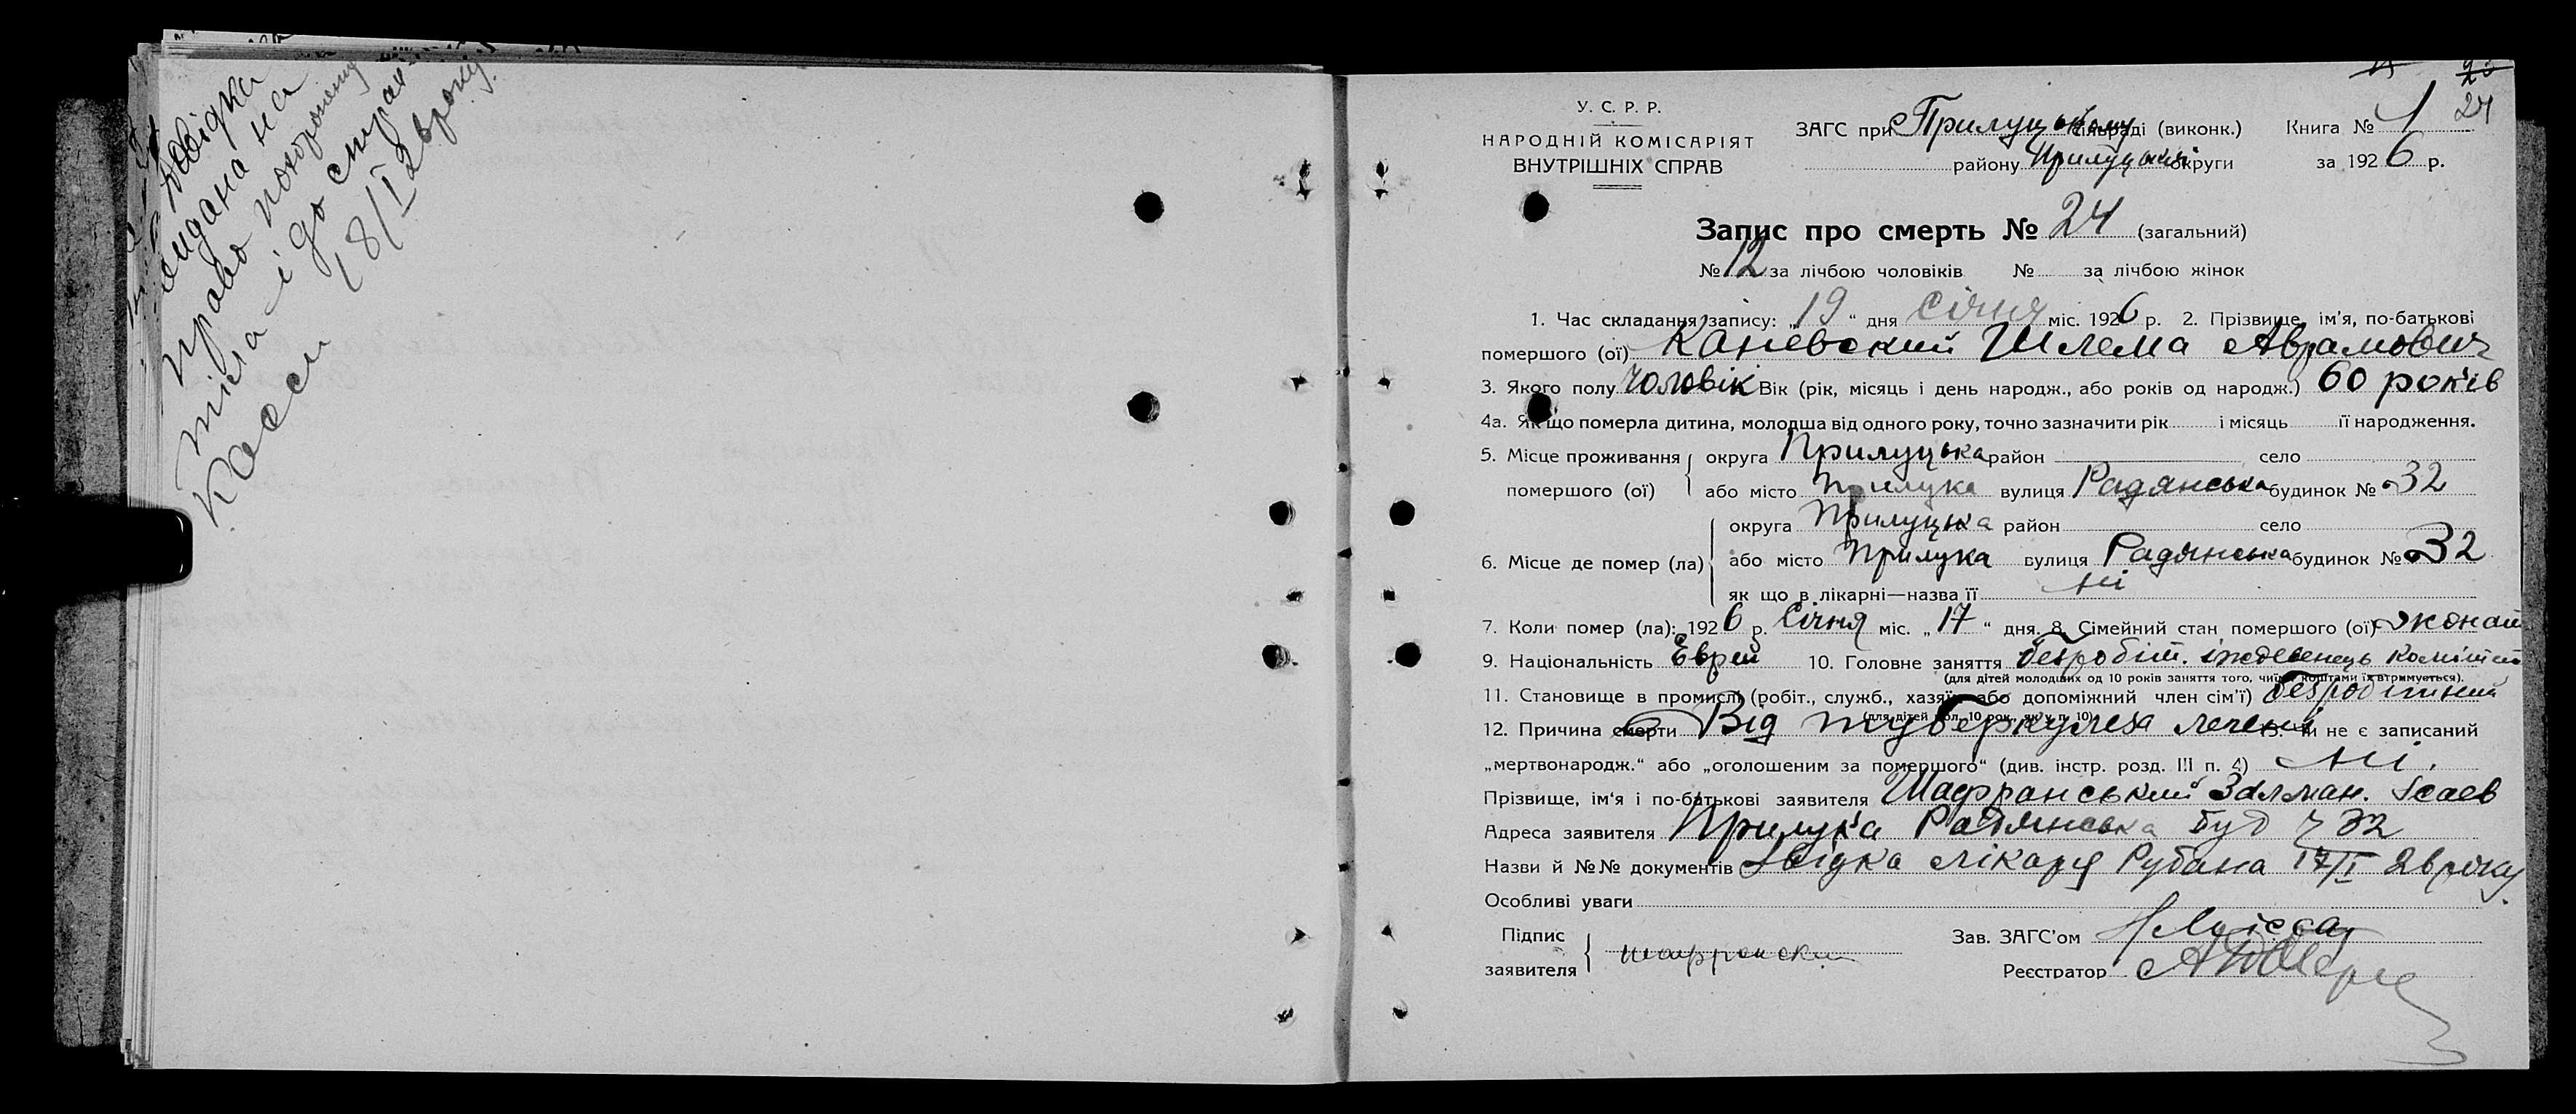 Довідка
видана на
право похорону
тіла і до страх
Каси 18/I 26 року.
24
У. С. Р. Р.
НАРОДНІЙ КОМІСАРІЯТ
ВНУТРІШНІХ СПРАВ
ЗАГС при Прилуцькому сільраді (виконк.) Книга № 1
району Прилуцької округи за 1926 р.
Запис про смерть № 24 (загальний)
№ 12 за лічбою чоловіків № за лічбою жінок
1. Час складання запису: „19“ дня Січня міс. 1926 р. 2. Прізвище, ім'я, по-батькові
помершого (ої) Каневский Шлема Аврамович
3. Якого полу Чоловік Вік (рік, місяць і день народж., або років од народж.) 60 років
4а. Як що померла дитина, молодша від одного року, точно зазначити рік і місяць її народження.
5. Місце проживання помершого (ої) округа Прилуцька район село
або місто Прилука вулиця Радянська будинок № 32
6. Місце де помер (ла) округа Прилуцька район село
або місто Прилука вулиця Радянська будинок № 32
як що в лікарні—назва її ні
7. Коли помер (ла): 1926 р. Січня міс. „17“ дня. 8. Сімейний стан помершого (ої) жонат
9. Національність Еврей 10. Головне заняття безробіт.
(для дітей молодших од 10 років заняття того, чиїми коштами їх втримується).
11. Становище в промислі (робіт., служб., хазяїн або допоміжний член сім'ї) безробітний
(для дітей мол. 10 рок., як у п. 10)
12. Причина смерти Від туберкульоза легень 13. Чи не є записаний
„мертвонародж.“ або „оголошеним за помершого“ (див. інстр. розд. III п. 4) ні.
Прізвище, ім'я і по-батькові заявителя Шафранський Залман. Ісаев
Адреса заявителя Прилука Радянська буд ч 32
Назви й №№ документів Довідка лікаря Рубана 17/I 26 року.
Особливі уваги
Підпис заявителя Шафранский Зав. ЗАГС'ом
Реєстратор